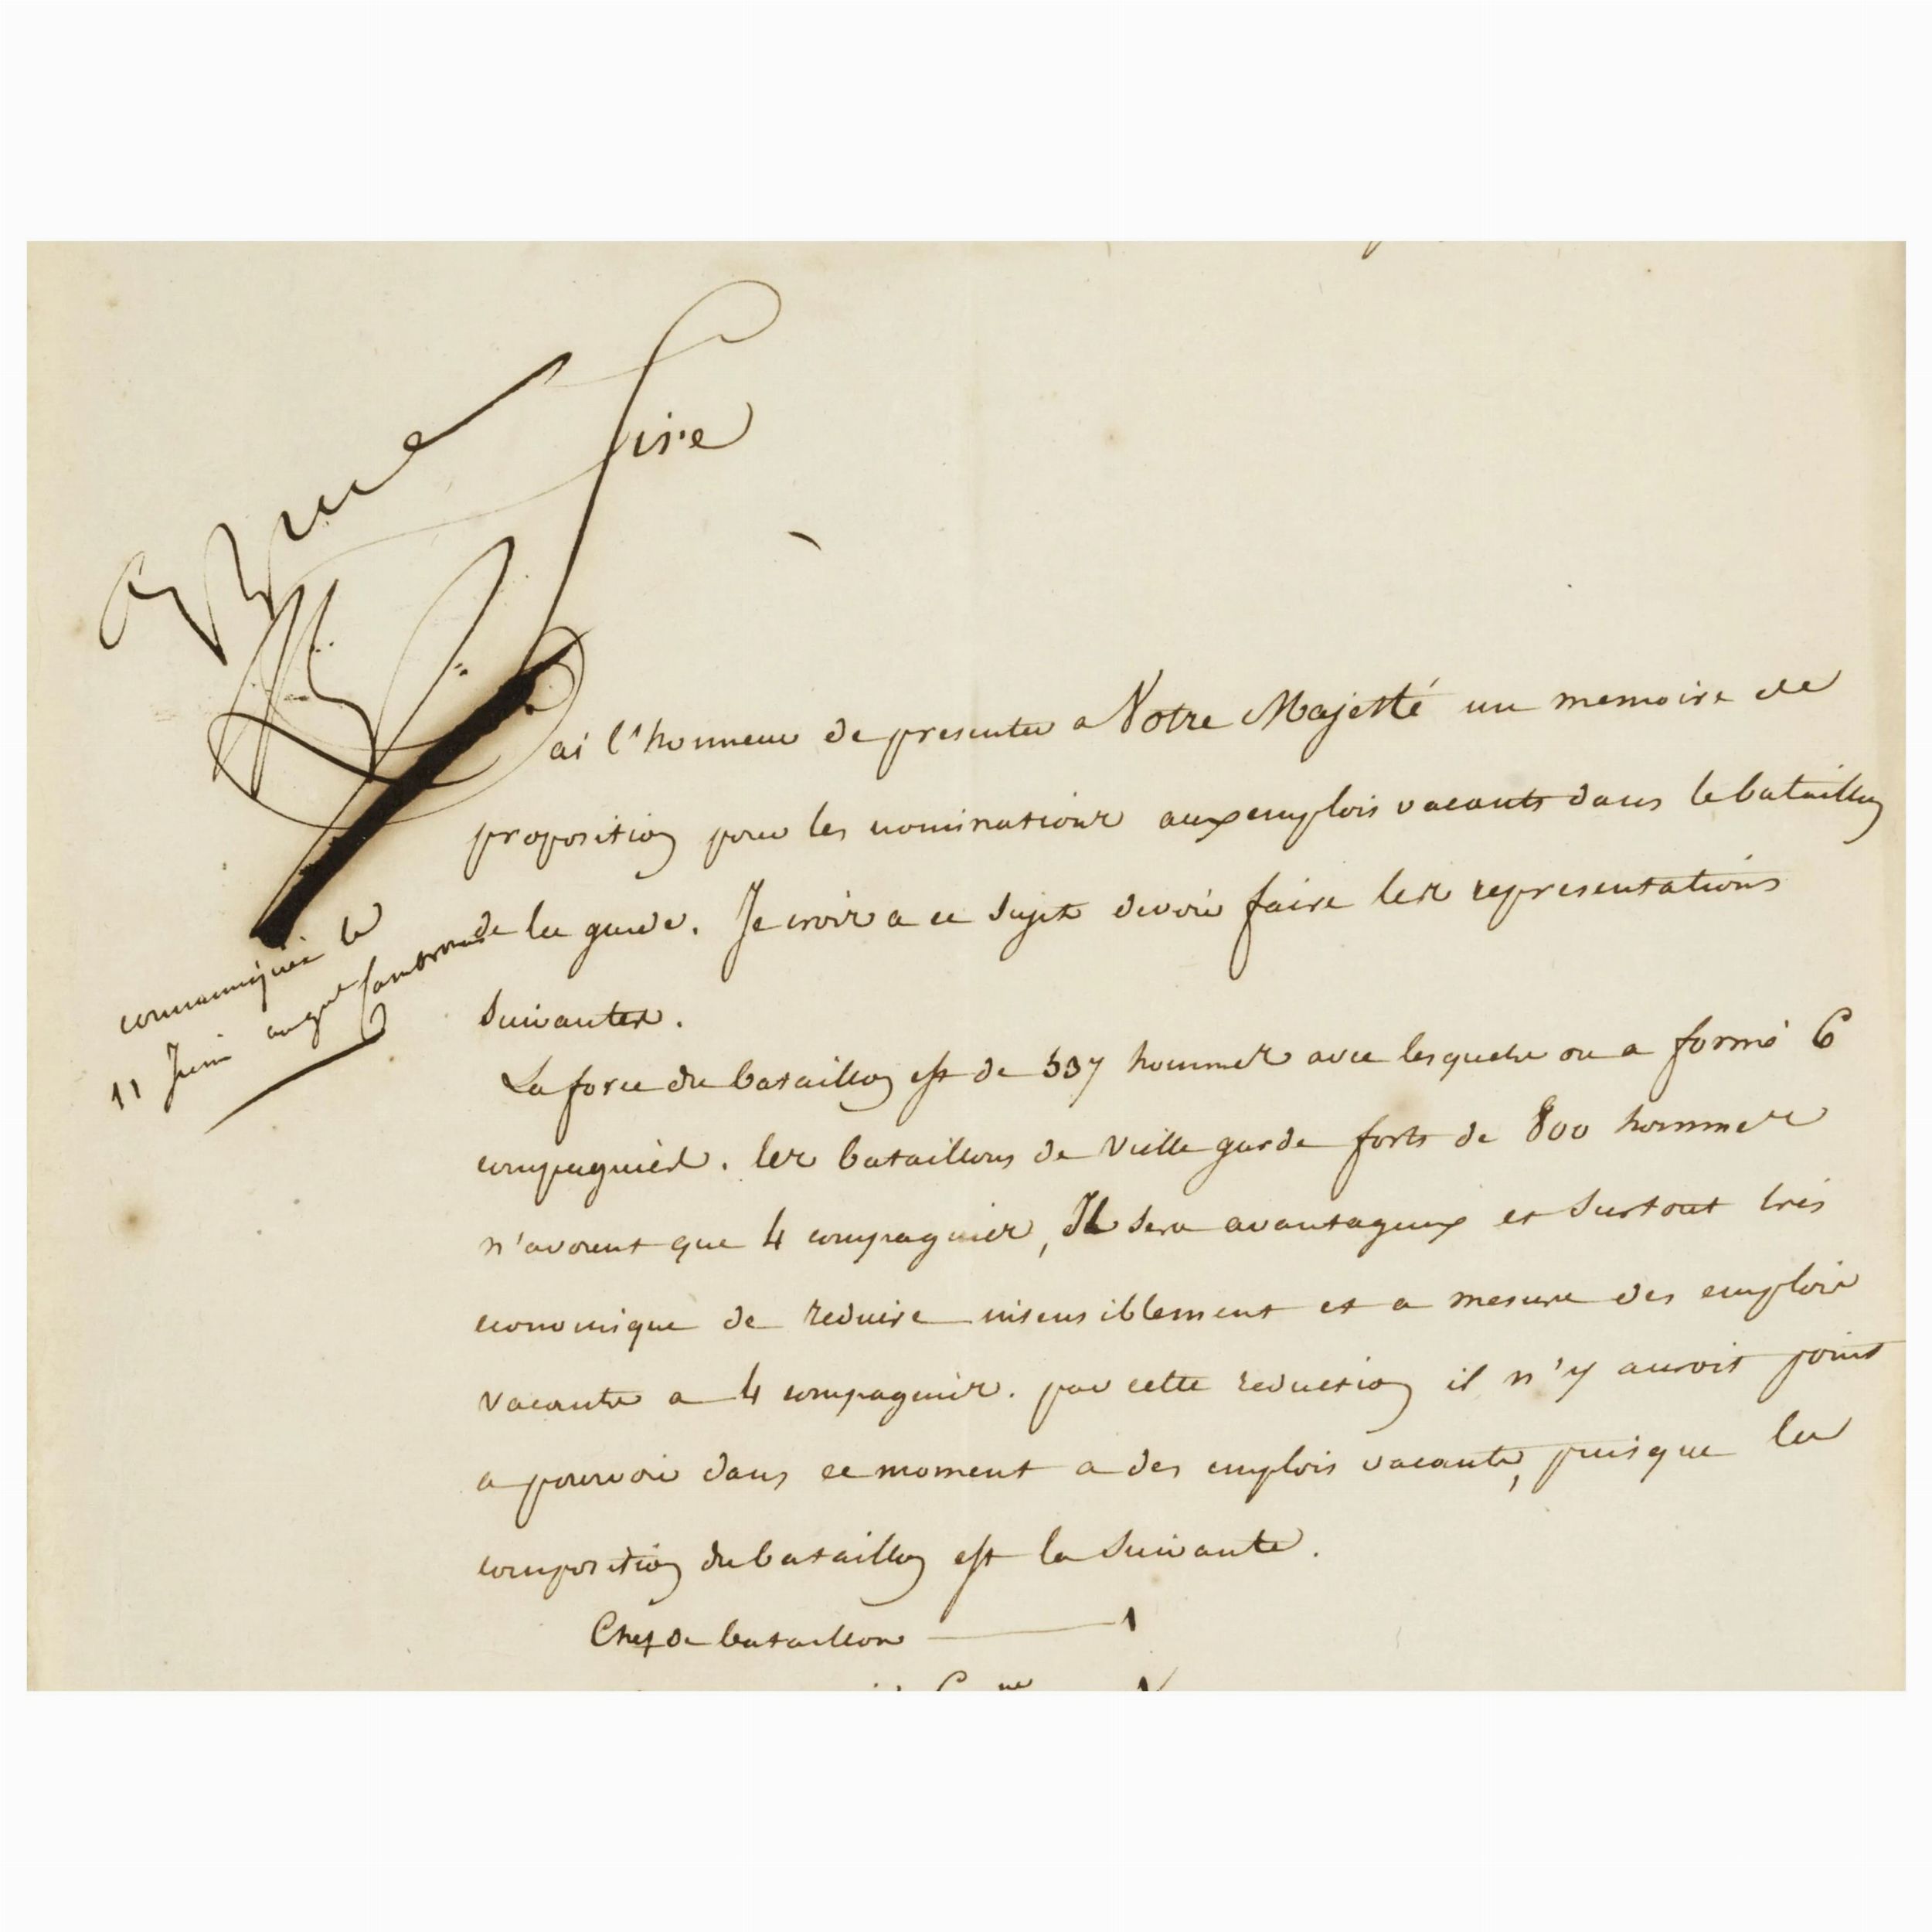 approuvé
Sire
ai l'honneur de presenter a Votre Majesté un memoire de
proposition pour les nominations aux emplois vacants dans le bataillon
de la garde. Je crois a ce sujet devoir faire les representations
suivantes.
communiqué le
11 Juin au gal Cambronne
La force du bataillon est de 537 hommes avec lesquels on a formé 6
compagnies. les bataillons de vielle garde forts de 800 hommes
n'avoient que 4 compagnies, Il sera avantageux et surtout très
economique de reduire insensiblement et a mesure des emplois
vacants a 4 compagnies. par cette reduction il n'y auroit point
a pourvoir dans ce moment a des emplois vacants, puisque la
composition du bataillon est la suivante.
Chef de bataillon 1